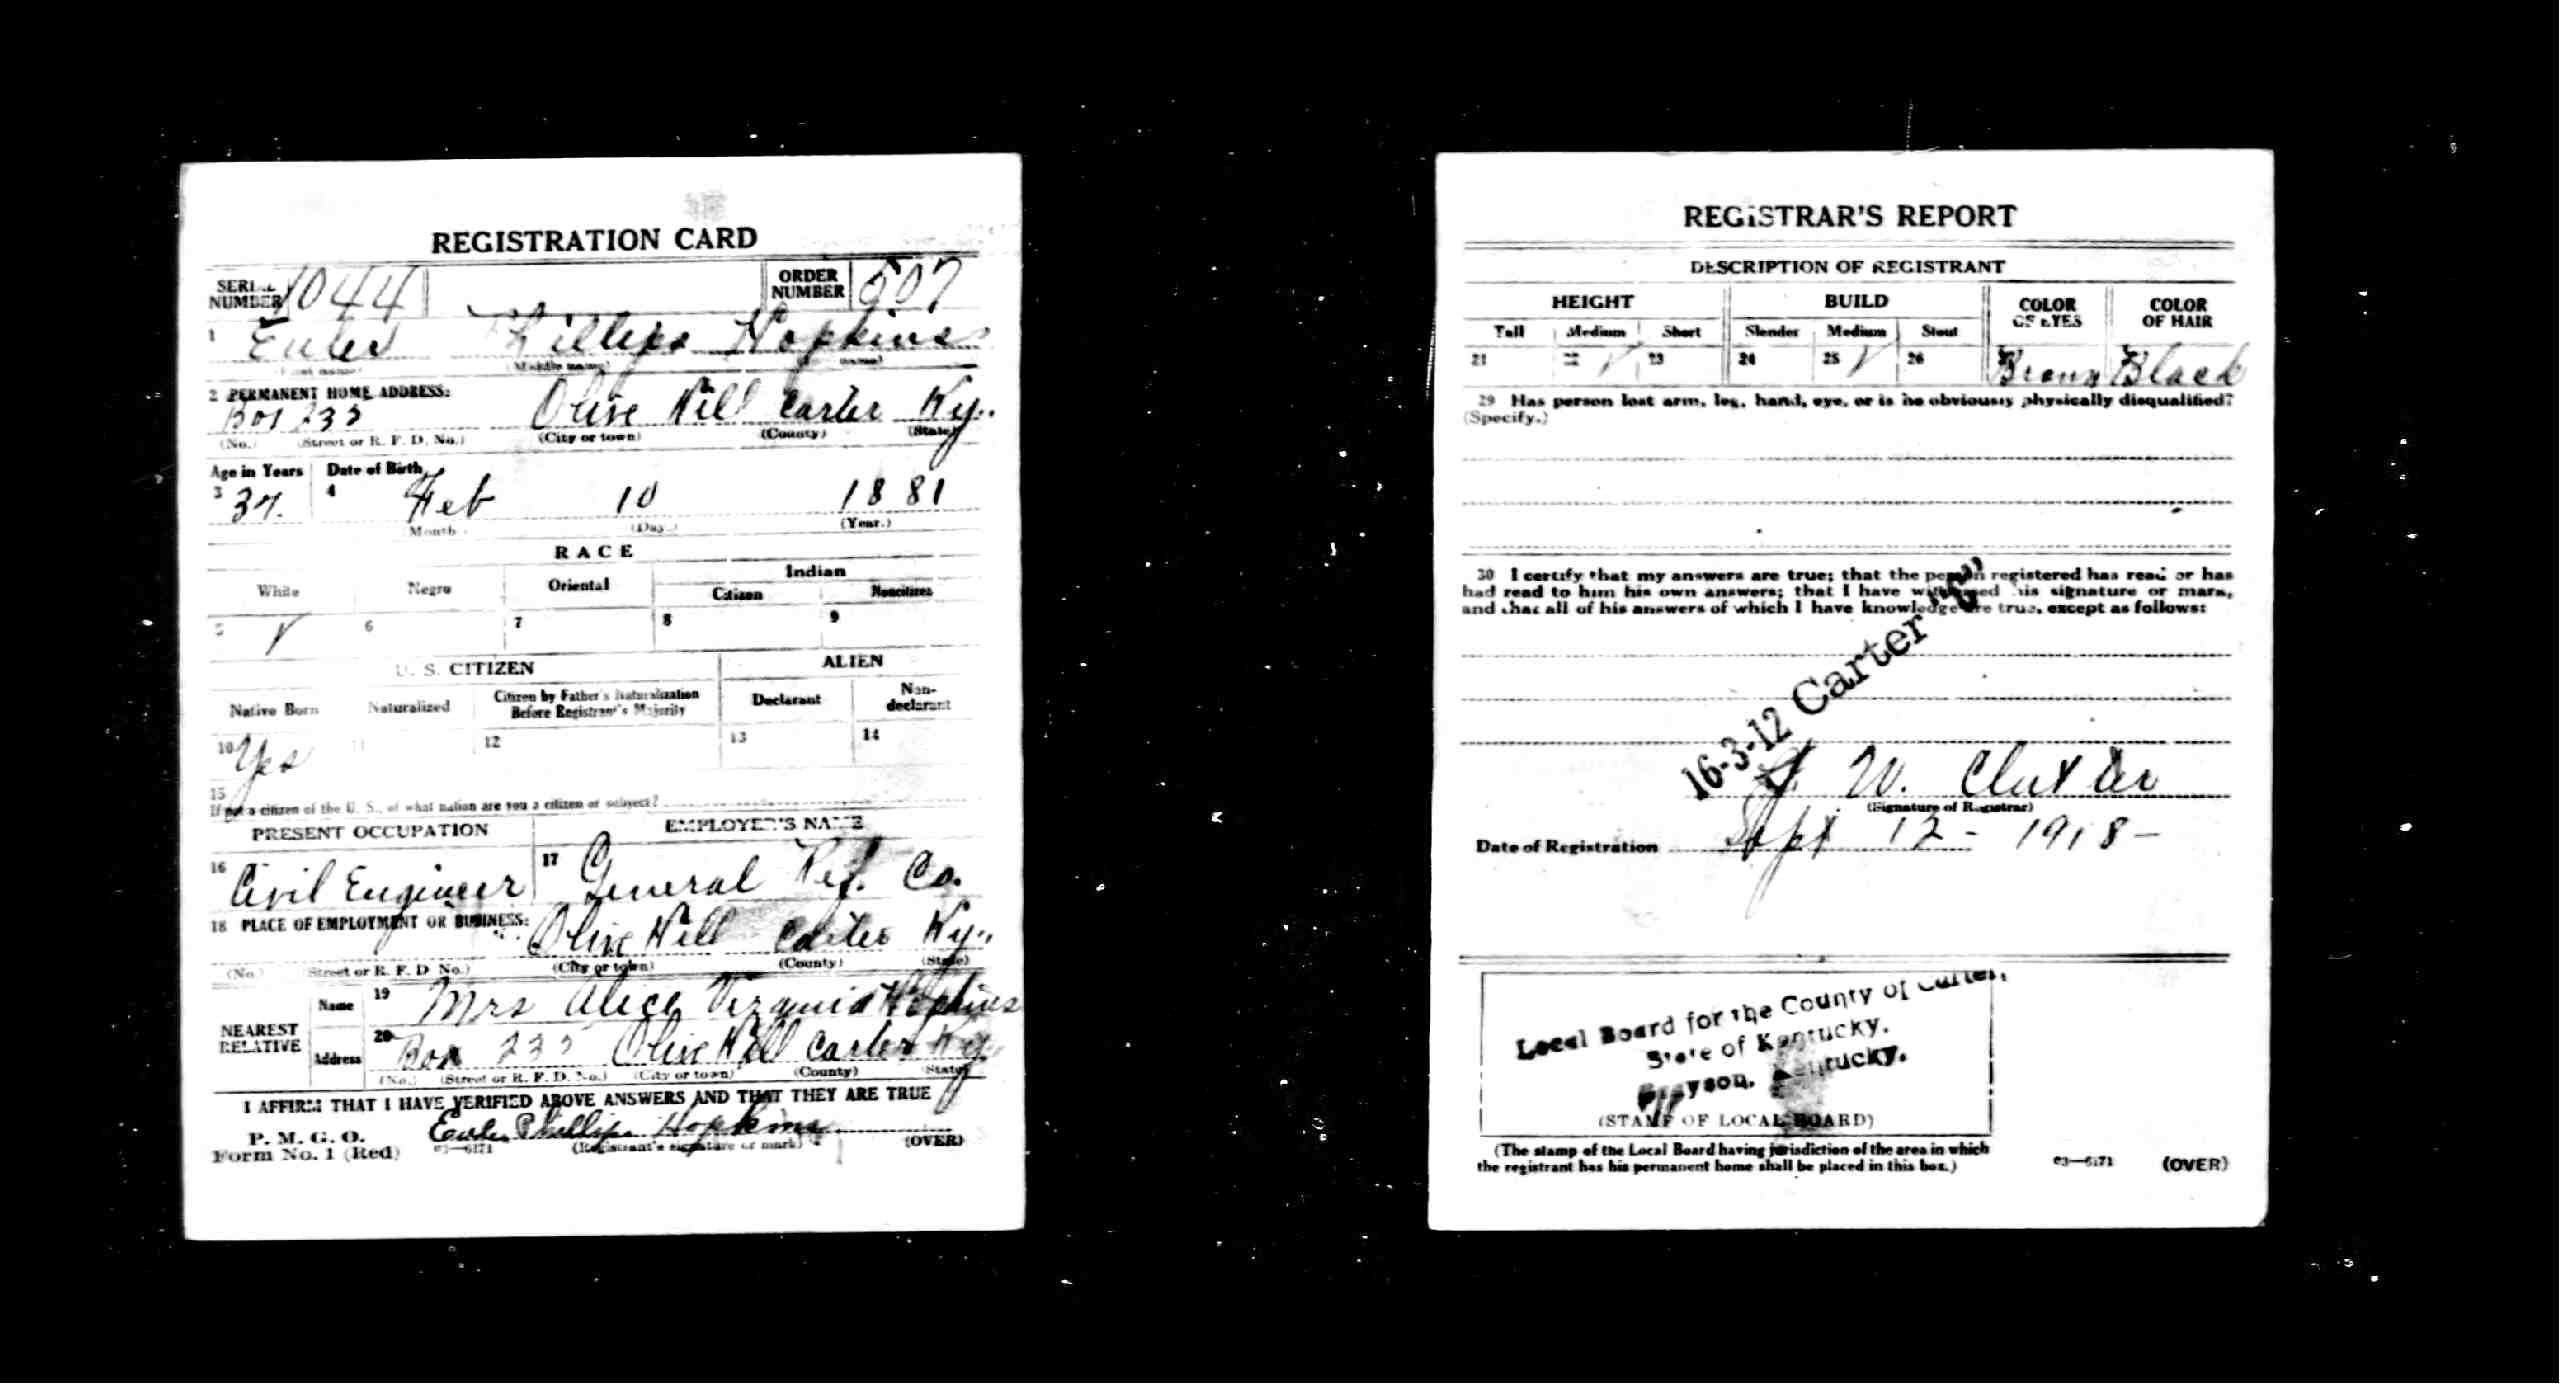 REGISTRATION CARD
SERIAL NUMBER 1044 ORDER NUMBER 507
1 Euler Phillips Hopkins
(First name) (Middle name) (Last name)
2 PERMANENT HOME ADDRESS:
Box 233 Olive Hill Carter Ky.
(No.) (Street or R. F. D. No.) (City or town) (County) (State)
Age in Years Date of Birth
3 37. 4 Feb 10 1881
Month (Day.) (Year.)
RACE
White Negro Oriental Indian
Citizen Noncitizen
5 √ 6 7 8 9
U. S. CITIZEN ALIEN
Native Born Naturalized Citizen by Father's Naturalization Before Registrant's Majority Declarant Non-declarant
10 Yes 11 12 13 14
15
If not a citizen of the U. S., of what nation are you a citizen or subject?
PRESENT OCCUPATION EMPLOYER'S NAME
16 Civil Engineer 17 General Ref. Co.
18 PLACE OF EMPLOYMENT OR BUSINESS:
Olive Hill Carter Ky.
(No.) (Street or R. F. D. No.) (City or town) (County) (State)
NEAREST RELATIVE
Name 19 Mrs Alice Virginia Hopkins
Address 20 Box 233 Olive Hill Carter Ky.
(No.) (Street or R. F. D. No.) (City or town) (County) (State)
I AFFIRM THAT I HAVE VERIFIED ABOVE ANSWERS AND THAT THEY ARE TRUE
P. M. G. O.
Form No. 1 (Red) 03—6171 Euler Phillips Hopkins
(Registrant's signature or mark) (OVER)
REGISTRAR'S REPORT
DESCRIPTION OF REGISTRANT
HEIGHT BUILD COLOR OF EYES COLOR OF HAIR
Tall Medium Short Slender Medium Stout
21 22 √ 23 24 25 √ 26 Brown Black
29 Has person lost arm, leg, hand, eye, or is he obviously physically disqualified?
(Specify.)
30 I certify that my answers are true; that the person registered has read or has
had read to him his own answers; that I have witnessed his signature or mark,
and that all of his answers of which I have knowledge are true, except as follows:
16-3-12 Carter "C"
W. Cluxter
(Signature of Registrar)
Date of Registration Sept 12 - 1918 -
Local Board for the County of Carter,
State of Kentucky.
Grayson, Kentucky.
(STAMP OF LOCAL BOARD)
(The stamp of the Local Board having jurisdiction of the area in which
the registrant has his permanent home shall be placed in this box.)
03—6171 (OVER)